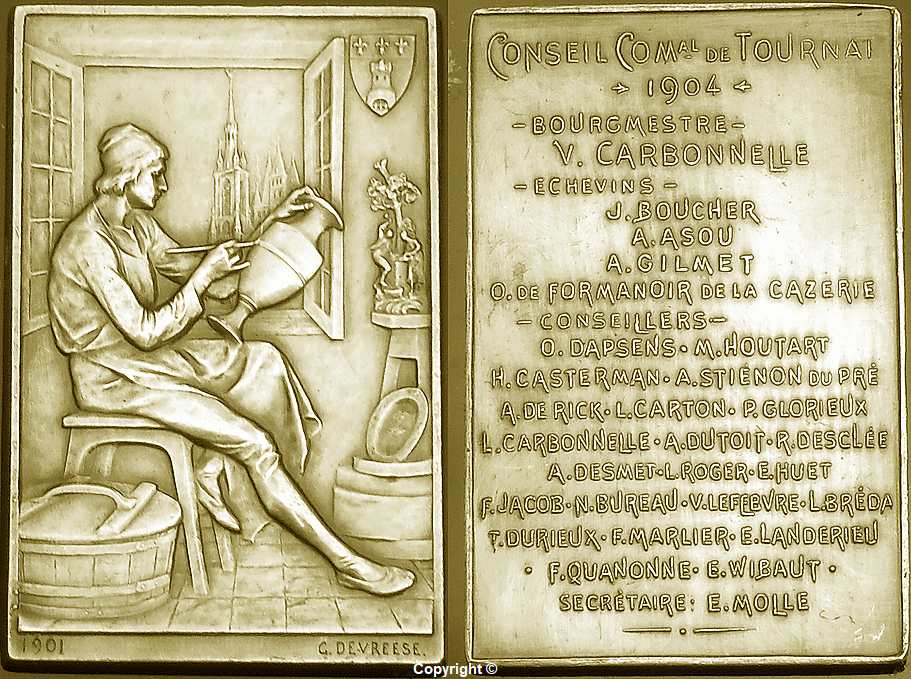 1901
G. DEVREESE.
CONSEIL COMAL DE TOURNAI
1904
-BOURGMESTRE-
V. CARBONNELLE
-ECHEVINS-
J. BOUCHER
A. ASOU
A. GILMET
O. DE FORMANOIR DE LA CAZERIE
-CONSEILLERS-
O. DAPSENS · M. HOUTART
H. CASTERMAN · A. STIÉNON DU PRÉ
A. DE RICK · L. CARTON · P. GLORIEUX
L. CARBONNELLE · A. DUTOIT · R. DESCLÉE
A. DESMET · L. ROGER · E. HUET
F. JACOB · N. BUREAU · V. LEFEBVRE · L. BRÉDA
T. DURIEUX · F. MARLIER · E. LANDERIEU
· F. QUANONNE · E. WIBAUT ·
SECRÉTAIRE: E. MOLLE
Copyright ©